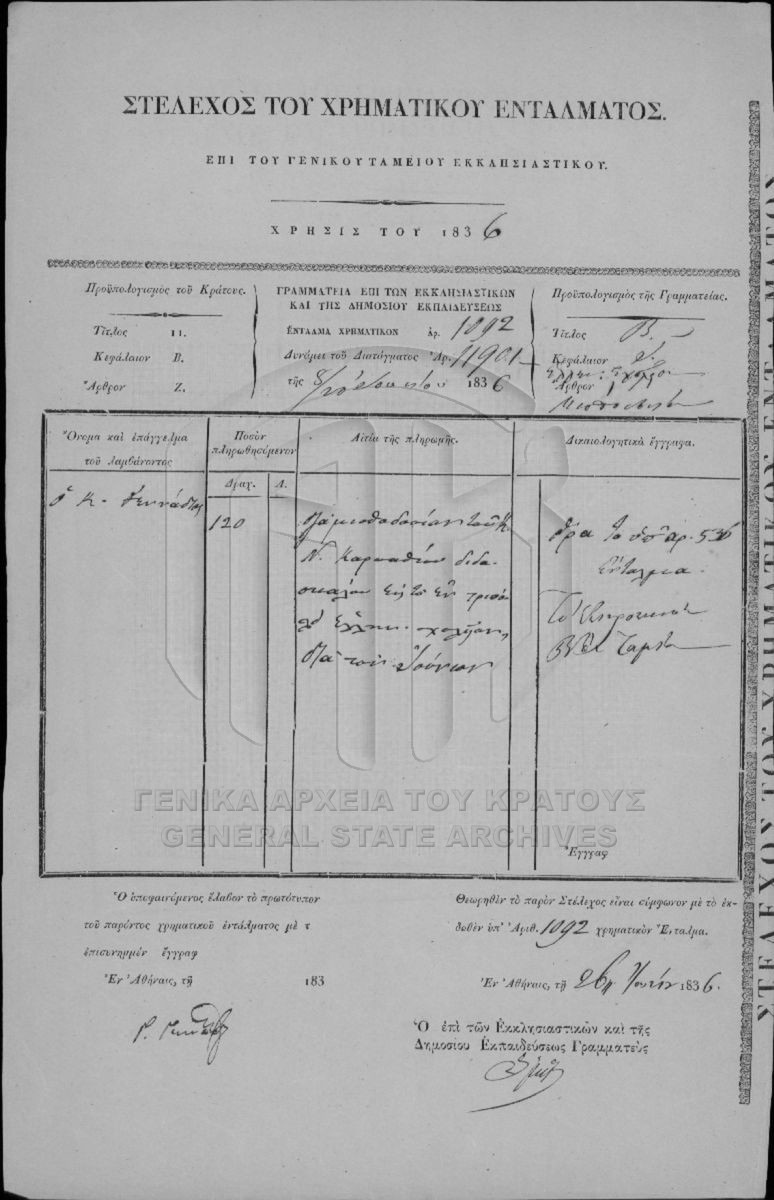 ΣΤΕΛΕΧΟΣ ΤΟΥ ΧΡΗΜΑΤΙΚΟΥ ΕΝΤΑΛΜΑΤΟΣ.
ΕΠΙ ΤΟΥ ΓΕΝΙΚΟΥ ΤΑΜΕΙΟΥ ΕΚΚΛΗΣΙΑΣΤΙΚΟΥ.
ΧΡΗΣΙΣ ΤΟΥ 1836
Προϋπολογισμὸς τοῦ Κράτους.
Τίτλος Π.
Κεφάλαιον Β.
Ἄρθρον Ζ.
ΓΡΑΜΜΑΤΕΙΑ ΕΠΙ ΤΩΝ ΕΚΚΛΗΣΙΑΣΤΙΚΩΝ
ΚΑΙ ΤΗΣ ΔΗΜΟΣΙΟΥ ΕΚΠΑΙΔΕΥΣΕΩΣ
ΕΝΤΑΛΜΑ ΧΡΗΜΑΤΙΚΟΝ ἀρ. 1092
Δυνάμει τοῦ Διατάγματος Ἀρ. 11901
τῆς 1836
Προϋπολογισμὸς τῆς Γραμματείας.
Τίτλος Β.
Κεφάλαιον
Ἄρθρον
Ὄνομα καὶ ἐπάγγελμα
τοῦ λαμβάνοντος
Ποσὸν
πληρωθησόμενον
Δραχ. Λ.
Αἰτία τῆς πληρωμῆς.
Δικαιολογητικὰ ἔγγραφα.
ὁ Κ. Γεννάδιος
120
διὰ μισθοδοσίαν τοῦ Κ.
Ν. Καρπαθίου διδα
σκάλου εἰς τὸ ἐν Τριπό
λει σχολεῖον
διὰ τὸν Ἰούνιον
ὅρα τὸ ὑπ' ἀρ. 536
ἔνταλμα.
Ἔγγραφ
ΓΕΝΙΚΑ ΑΡΧΕΙΑ ΤΟΥ ΚΡΑΤΟΥΣ
GENERAL STATE ARCHIVES
Ὁ ὑποφαινόμενος ἔλαβον τὸ πρωτότυπον
τοῦ παρόντος χρηματικοῦ ἐντάλματος μὲ τ
ἐπισυνημμέν ἔγγραφ
Ἐν Ἀθήναις, τῇ 183
Θεωρηθὲν τὸ παρὸν Στέλεχος εἶναι σύμφωνον μὲ τὸ ἐκ-
δοθὲν ὑπ' Ἀριθ. 1092 χρηματικὸν Ἔνταλμα.
Ἐν Ἀθήναις, τῇ 26 1836.
Ὁ ἐπὶ τῶν Ἐκκλησιαστικῶν καὶ τῆς
Δημοσίου Ἐκπαιδεύσεως Γραμματεὺς
ΣΤΕΛΕΧΟΣ ΤΟΥ ΧΡΗΜΑΤΙΚΟΥ ΕΝΤΑΛΜΑΤΟΣ